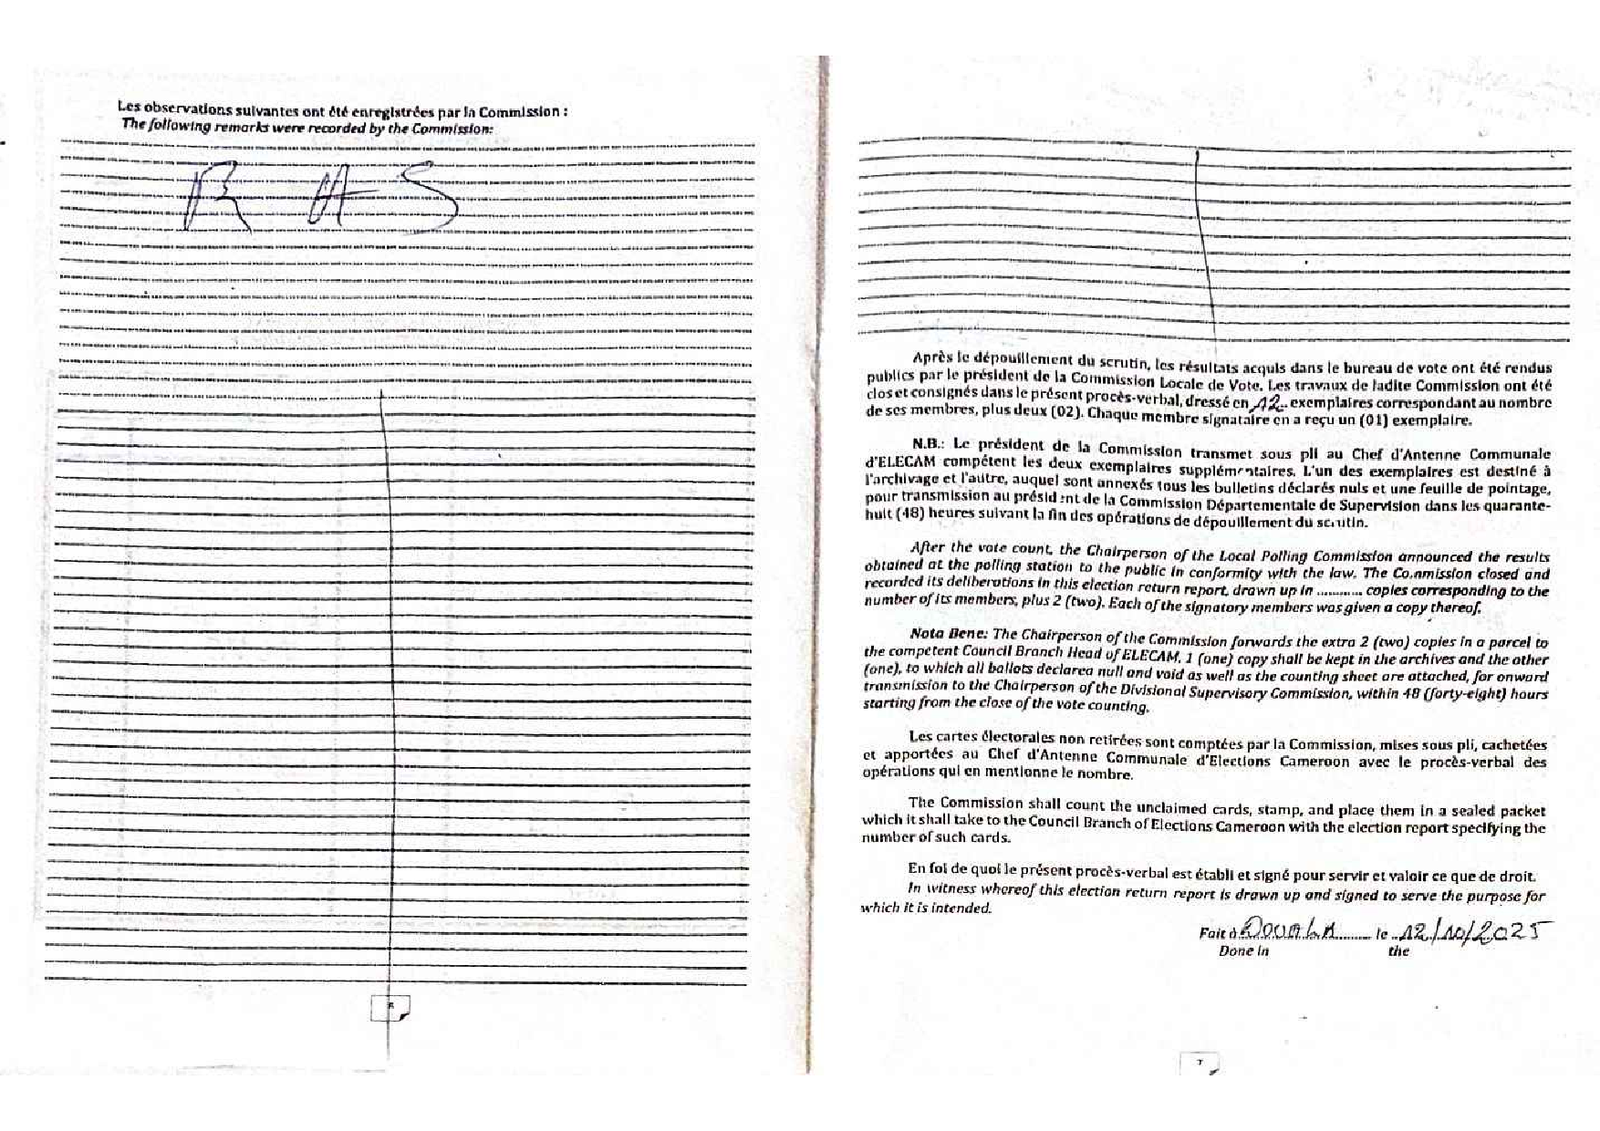 Les observations suivantes ont été enregistrées par la Commission :
The following remarks were recorded by the Commission:
R A S
Après le dépouillement du scrutin, les résultats acquis dans le bureau de vote ont été rendus
publics par le président de la Commission Locale de Vote. Les travaux de ladite Commission ont été
clos et consignés dans le présent procès-verbal, dressé en 12 exemplaires correspondant au nombre
de ses membres, plus deux (02). Chaque membre signataire en a reçu un (01) exemplaire.
N.B.: Le président de la Commission transmet sous pli au Chef d'Antenne Communale
d'ELECAM compétent les deux exemplaires supplémentaires. L'un des exemplaires est destiné à
l'archivage et l'autre, auquel sont annexés tous les bulletins déclarés nuls et une feuille de pointage,
pour transmission au président de la Commission Départementale de Supervision dans les quarante-
huit (48) heures suivant la fin des opérations de dépouillement du scrutin.
After the vote count, the Chairperson of the Local Polling Commission announced the results
obtained at the polling station to the public in conformity with the law. The Commission closed and
recorded its deliberations in this election return report, drawn up in ............ copies corresponding to the
number of its members, plus 2 (two). Each of the signatory members was given a copy thereof.
Nota Bene: The Chairperson of the Commission forwards the extra 2 (two) copies in a parcel to
the competent Council Branch Head of ELECAM, 1 (one) copy shall be kept in the archives and the other
(one), to which all ballots declared null and void as well as the counting sheet are attached, for onward
transmission to the Chairperson of the Divisional Supervisory Commission, within 48 (forty-eight) hours
starting from the close of the vote counting.
Les cartes électorales non retirées sont comptées par la Commission, mises sous pli, cachetées
et apportées au Chef d'Antenne Communale d'Elections Cameroon avec le procès-verbal des
opérations qui en mentionne le nombre.
The Commission shall count the unclaimed cards, stamp, and place them in a sealed packet
which it shall take to the Council Branch of Elections Cameroon with the election report specifying the
number of such cards.
En foi de quoi le présent procès-verbal est établi et signé pour servir et valoir ce que de droit.
In witness whereof this election return report is drawn up and signed to serve the purpose for
which it is intended.
Fait à DOUALA le 12/10/2025
Done in the
7